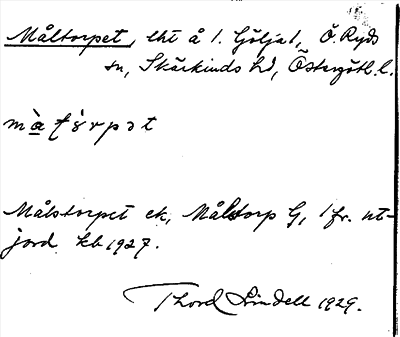 Måltorpet, lht å 1. Göljal, Ö. Ryds
sn, Skärkinds hd, Östergötl. l.
Målstorpet ek, Målstorp G, 1 fr. ut-
jord kb 1927.
Thord Lindell 1929.